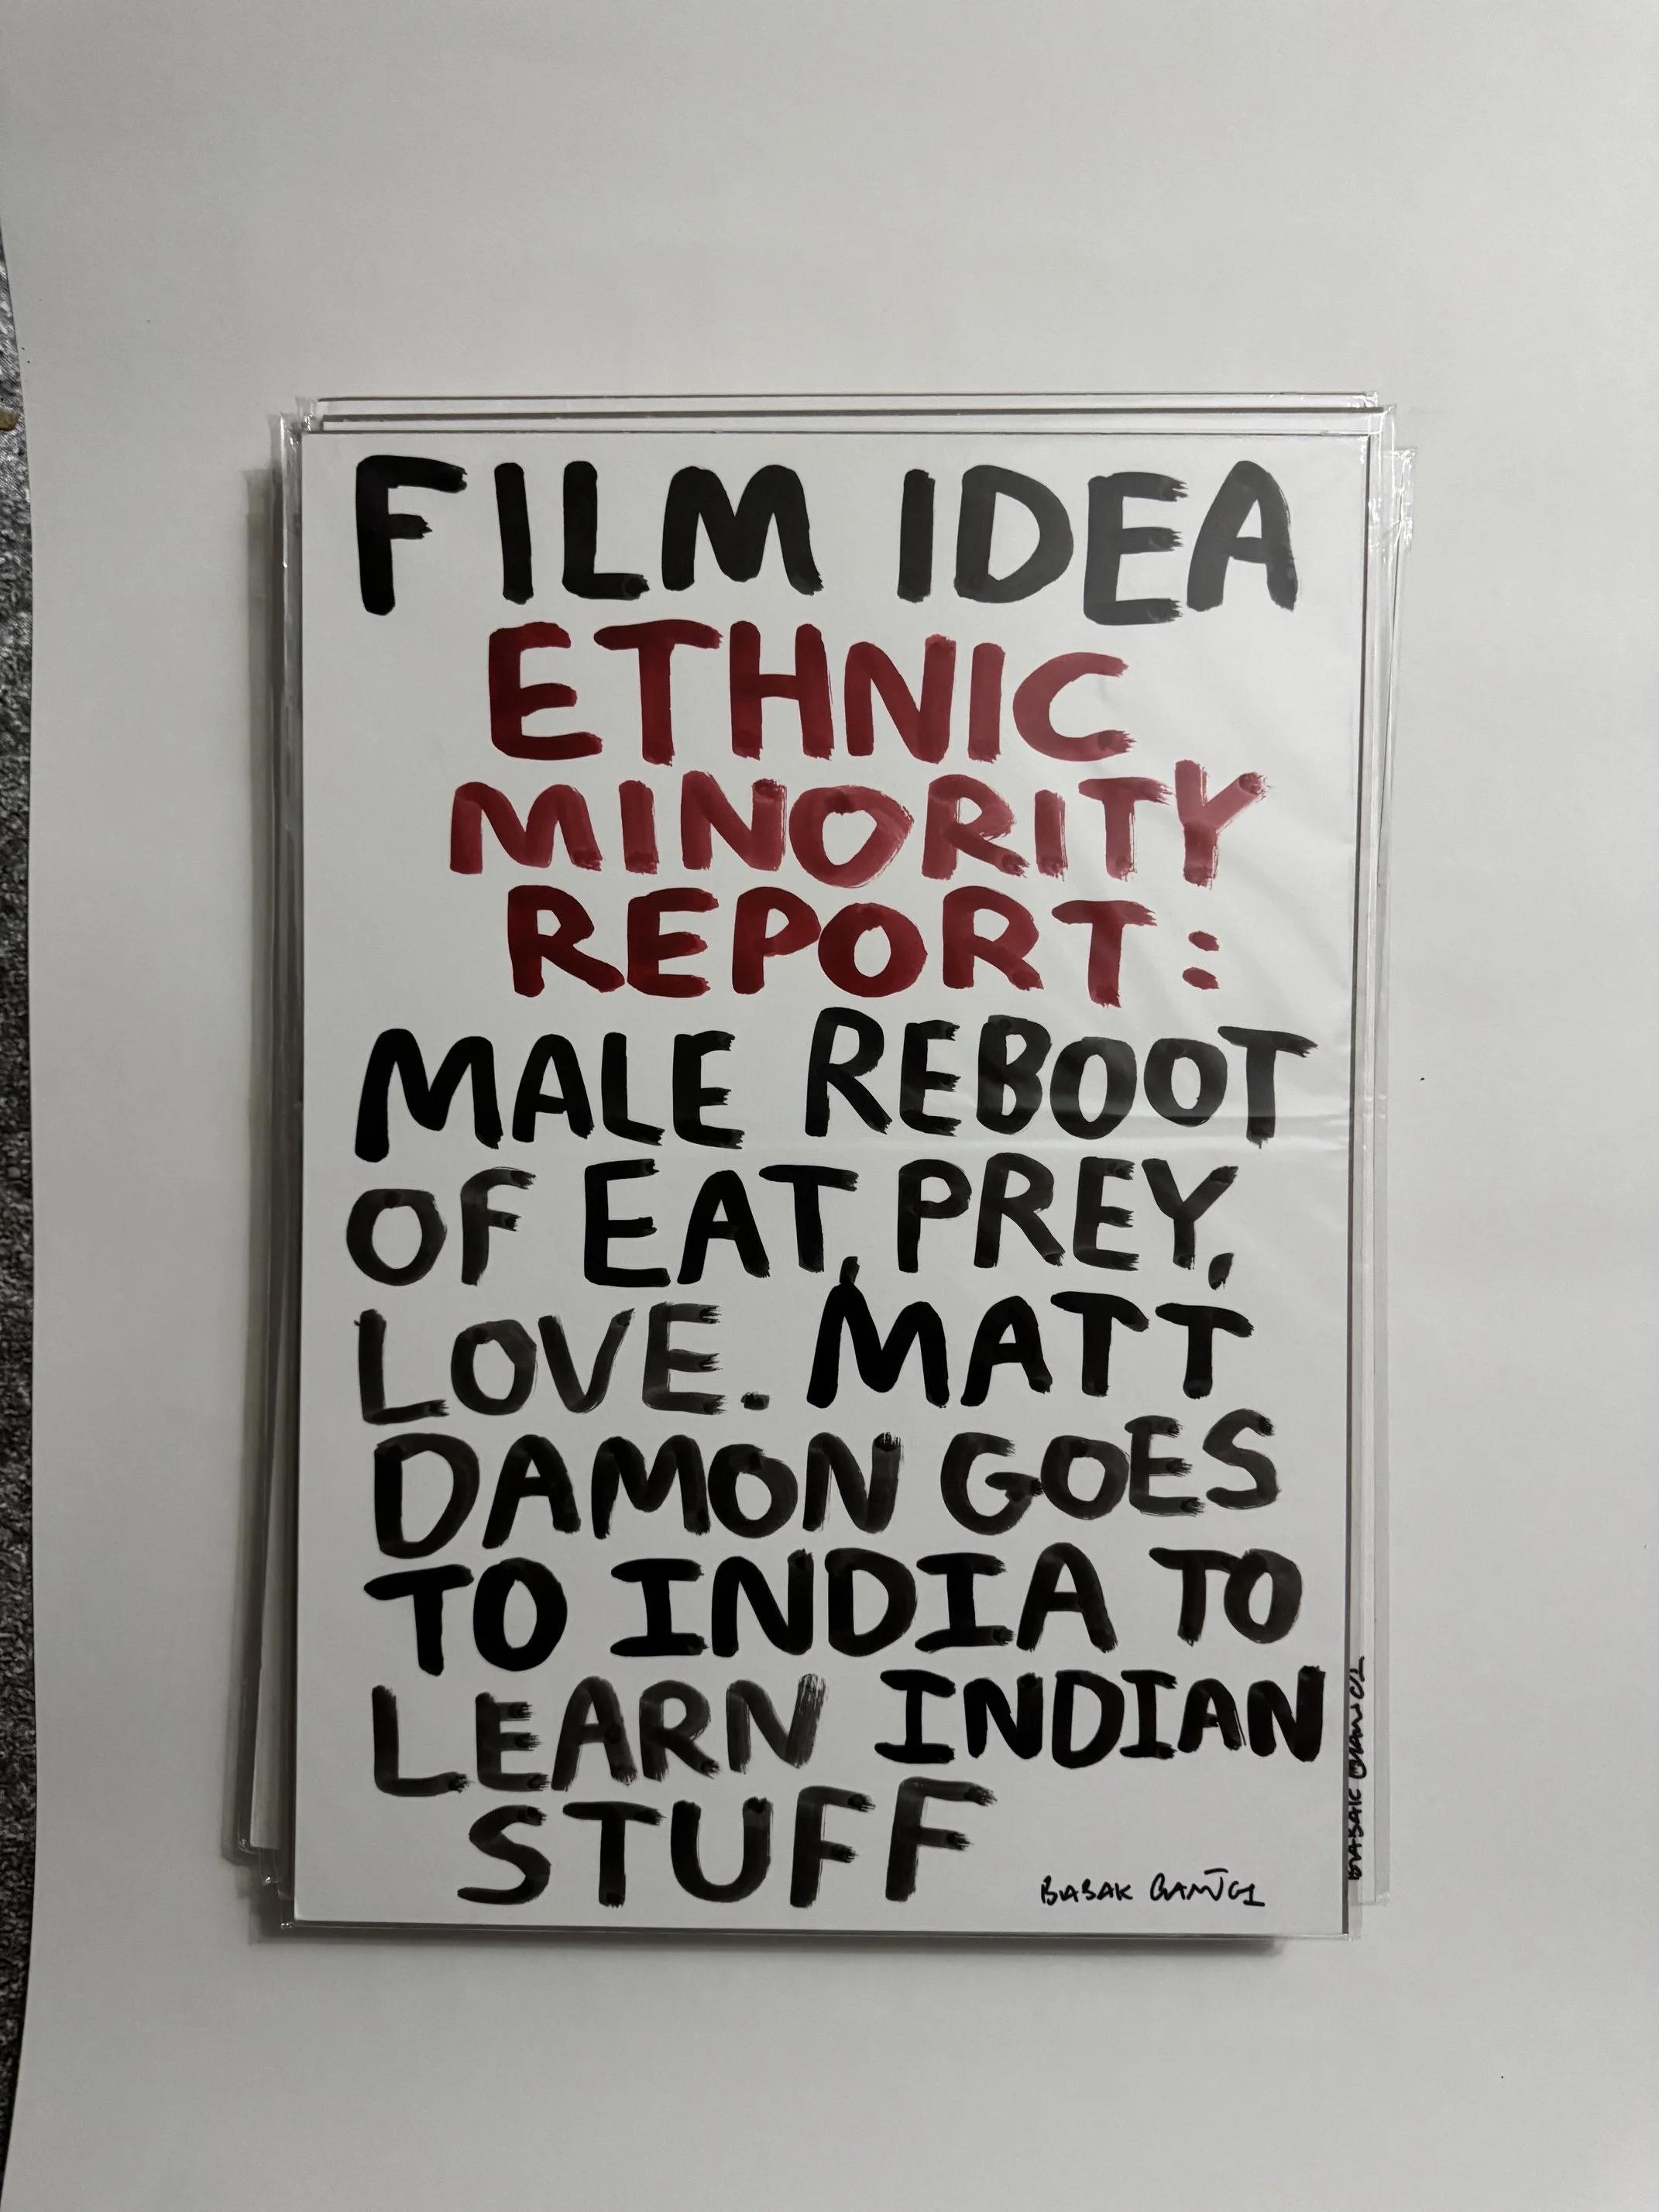 FILM IDEA
ETHNIC
MINORITY
REPORT:
MALE REBOOT
OF EAT, PREY,
LOVE. MATT
DAMON GOES
TO INDIA TO
LEARN INDIAN
STUFF
BABAK GANJEI
BABAK GANJEI